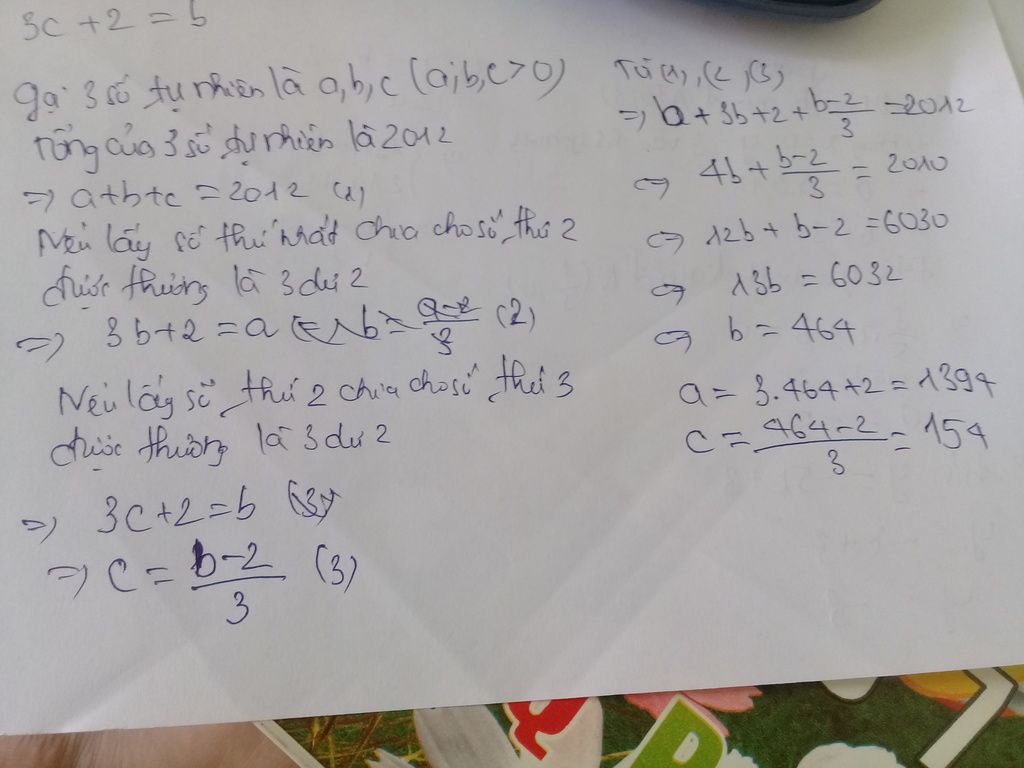 3c + 2 = b
Gọi 3 số tự nhiên là a, b, c (a;b,c > 0)
Tổng của 3 số tự nhiên là 2012
=> a+b+c = 2012 (1)
Nếu lấy số thứ nhất chia cho số thứ 2
được thương là 3 dư 2
=> 3b+2 = a (2)
Nếu lấy số thứ 2 chia cho số thứ 3
được thương là 3 dư 2
=> 3c+2 = b (3)
=> c = \frac{b-2}{3} (3)
Từ (1), (2, (3)
=> b + 3b + 2 + \frac{b-2}{3} = 2012
<=> 4b + \frac{b-2}{3} = 2010
<=> 12b + b - 2 = 6030
<=> 13b = 6032
<=> b = 464
a = 3.464+2 = 1394
c = \frac{464-2}{3} = 154